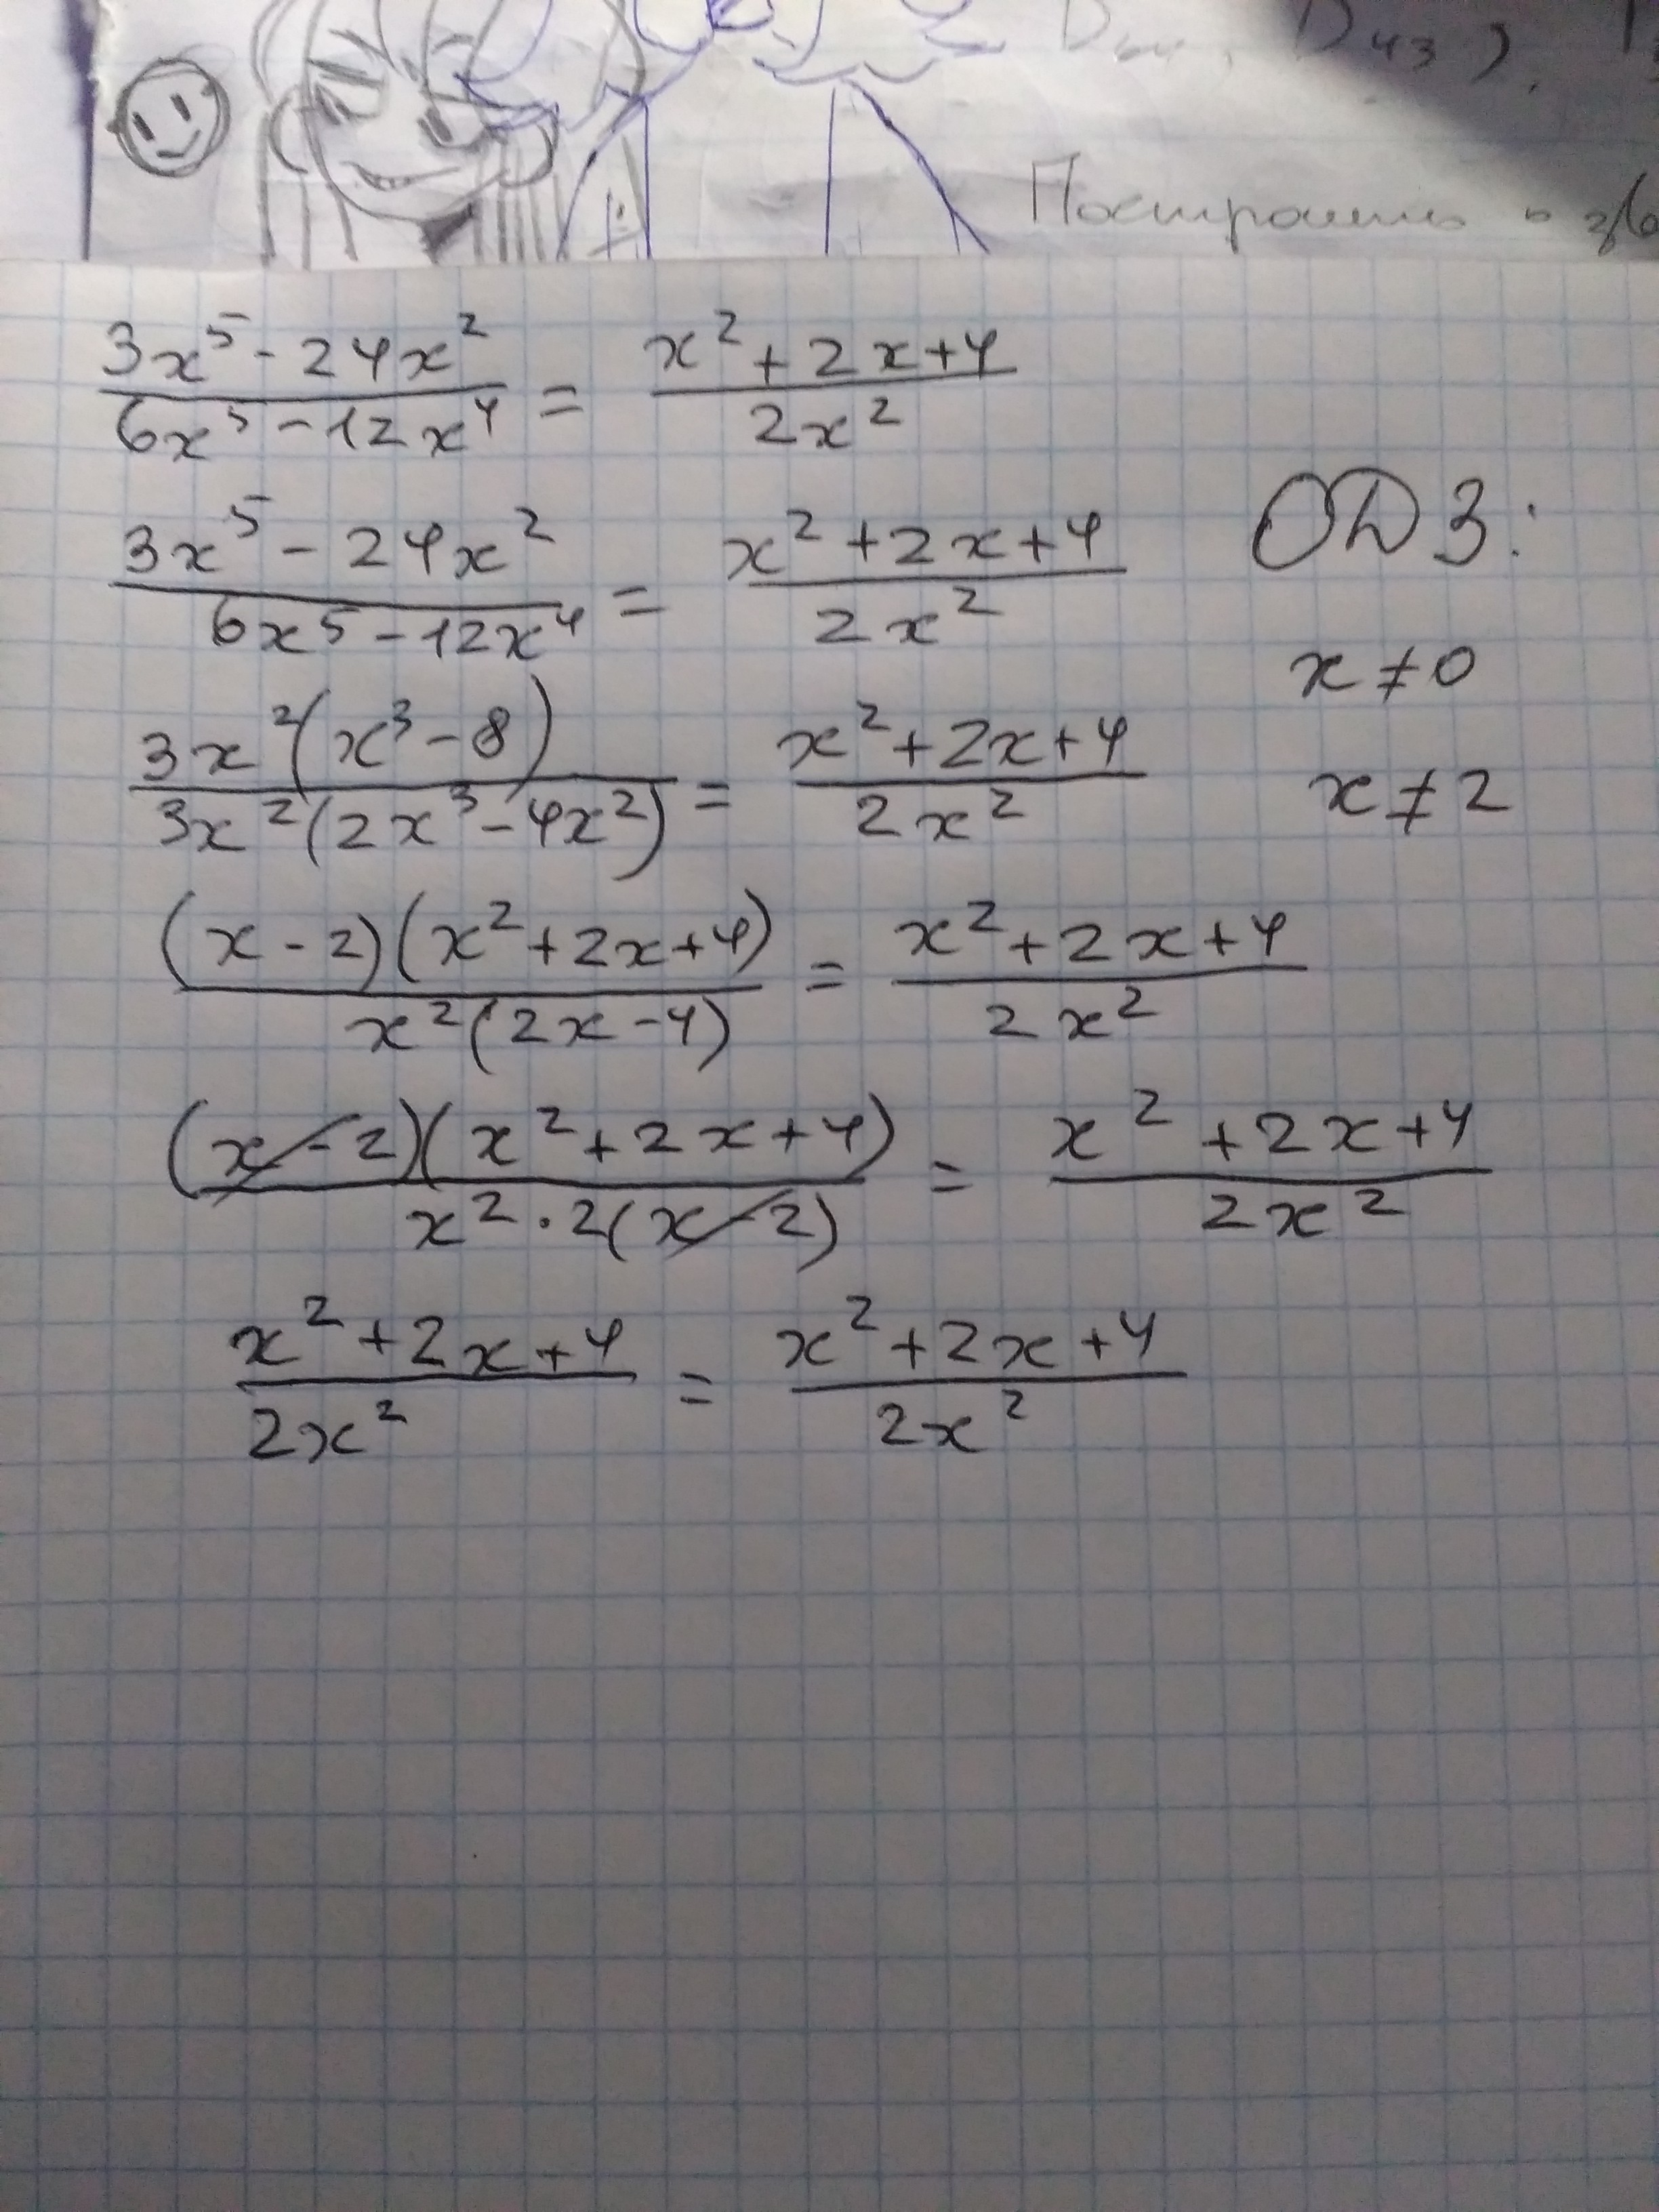 Построить
(3x⁵ - 24x²)/(6x⁵ - 12x⁴) = (x² + 2x + 4)/(2x²)
(3x⁵ - 24x²)/(6x⁵ - 12x⁴) = (x² + 2x + 4)/(2x²)
ОДЗ:
x ≠ 0
3x²(x³ - 8)/(3x²(2x³ - 4x²)) = (x² + 2x + 4)/(2x²)
x ≠ 2
(x - 2)(x² + 2x + 4)/(x²(2x - 4)) = (x² + 2x + 4)/(2x²)
(x - 2)(x² + 2x + 4)/(x² · 2(x - 2)) = (x² + 2x + 4)/(2x²)
(x² + 2x + 4)/(2x²) = (x² + 2x + 4)/(2x²)